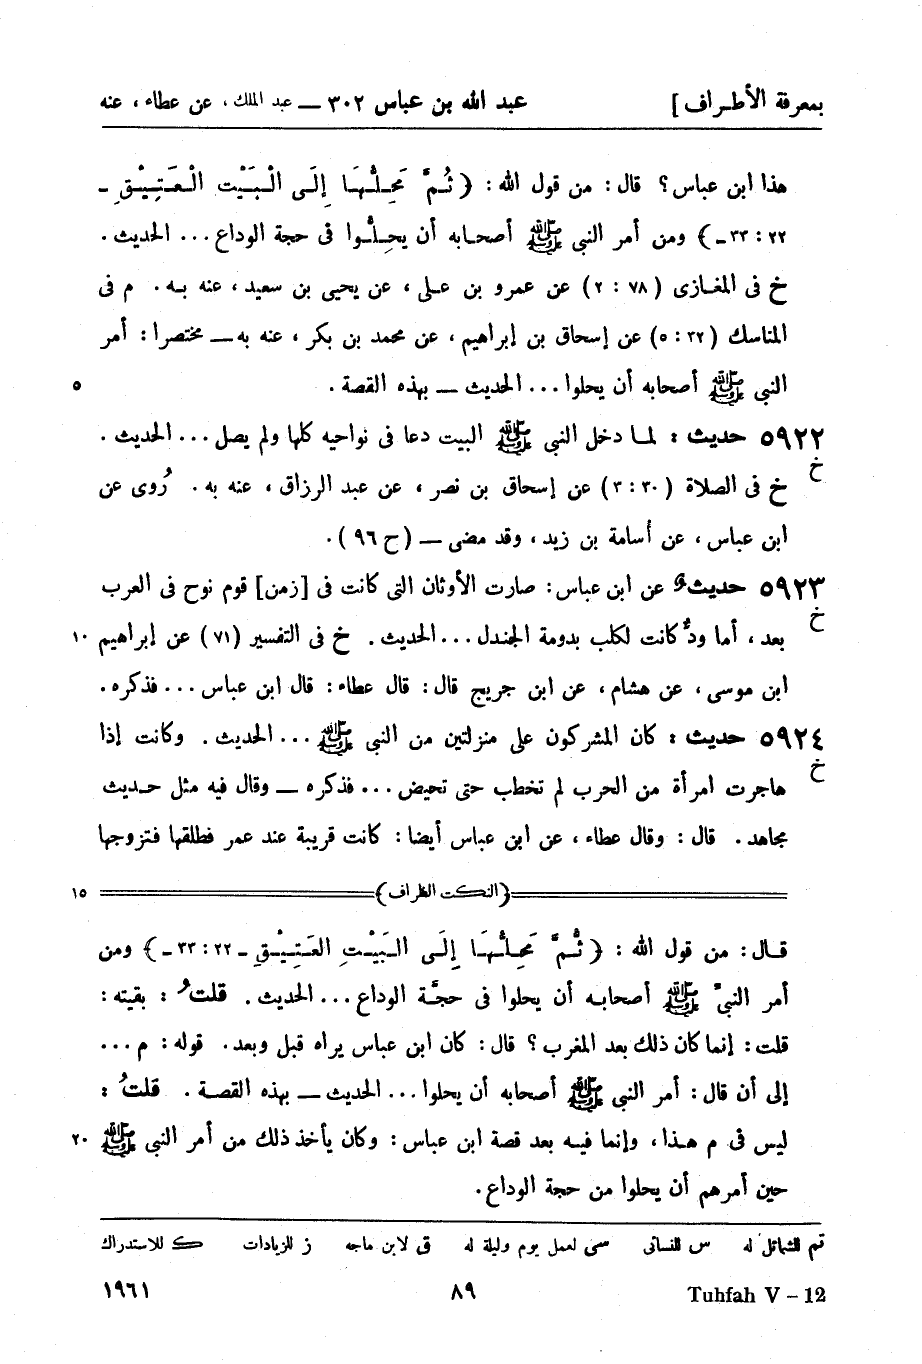 بمعرفة الأطراف ] عبد الله بن عباس ٣٠٢ — عبد الملك ، عن عطاء ، عنه
هذا ابن عباس؟ قال: من قول الله: ﴿ ثُمَّ مَحِلُّهَا إِلَى الْبَيْتِ الْعَتِيْقِ ـ
٢٢ : ٣٣ـ ﴾ ومن أمر النبي ﷺ أصحابه أن يحِلُّوا فى حجة الوداع ... الحديث .
خ فى المغازى ( ٧٨ : ٢ ) عن عمرو بن على ، عن يحيى بن سعيد ، عنه به . م فى
المناسك ( ٣٢ : ٥) عن إسحاق بن إبراهيم ، عن محمد بن بكر ، عنه به — مختصرا : أمر
النبي ﷺ أصحابه أن يحلوا ... الحديث — بهذه القصة . ٥
٥٩٢٢ حديث : لما دخل النبي ﷺ البيت دعا فى نواحيه كلها ولم يصل ... الحديث .
خ
خ فى الصلاة ( ٣٠ : ٣ ) عن إسحاق بن نصر ، عن عبد الرزاق ، عنه به . رُوى عن
ابن عباس ، عن أسامة بن زيد ، وقد مضى — (ح ٩٦ ) .
٥٩٢٣ حديث عن ابن عباس : صارت الأوثان التى كانت فى [زمن] قوم نوح فى العرب
خ
بعد ، أما ودٌّ كانت لكلب بدومة الجندل ... الحديث . خ فى التفسير (٧١) عن إبراهيم ١٠
ابن موسى ، عن هشام ، عن ابن جريج قال : قال عطاء : قال ابن عباس ... فذكره .
٥٩٢٤ حديث : كان المشركون على منزلتين من النبي ﷺ ... الحديث . وكانت إذا
خ
هاجرت امرأة من الحرب لم تخطب حتى تحيض ... فذكره — وقال فيه مثل حديث
مجاهد . قال : وقال عطاء ، عن ابن عباس أيضا : كانت قريبة عند عمر فطلقها فتزوجها
(النكت الظراف) ١٥
قال : من قول الله : ﴿ ثُمَّ مَحِلُّهَا إِلَى الْبَيْتِ العَتِيْقِ ـ ٢٢ : ٣٣ ـ ﴾ ومن
أمر النبيّ ﷺ أصحابه أن يحلوا فى حجَّة الوداع ... الحديث . قلتُ : بقيته :
قلت : إنما كان ذلك بعد المغرب ؟ قال : كان ابن عباس يراه قبل وبعد . قوله : م ...
إلى أن قال : أمر النبي ﷺ أصحابه أن يحلوا ... الحديث — بهذه القصة . قلتُ :
ليس فى م هذا ، وإنما فيه بعد قصة ابن عباس : وكان يأخذ ذلك من أمر النبي ﷺ ٢٠
حين أمرهم أن يحلوا من حجة الوداع .
تم للشمائل له س للنسائى سى لعمل يوم وليلة له ق لابن ماجه ز للزيادات ك للاستدراك
Tuhfah V – 12 ٨٩ ١٩٦١